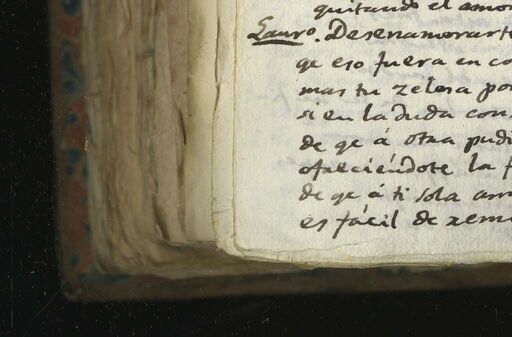 quitando el amor
Lauro. Desenamorarte
qe eso fuera en co
mas tu zelosa po
si en la duda con
de qe á otra pudi
ofreciéndote la f
de qe á ti sola am
es fácil de reme